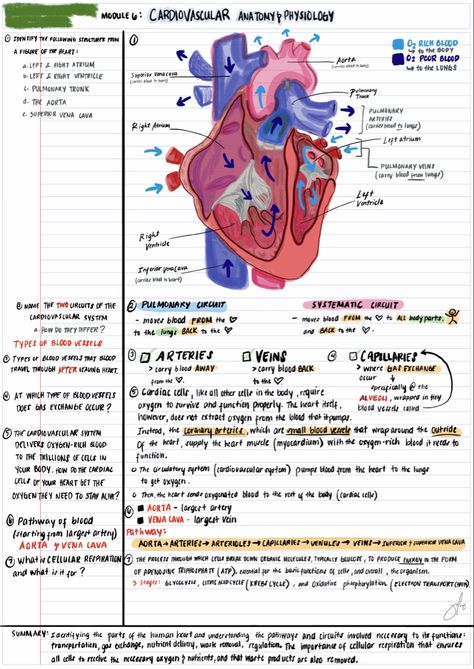 MODULE 6: CARDIOVASCULAR ANATOMY & PHYSIOLOGY
① IDENTIFY THE FOLLOWING STRUCTURES FROM
A FIGURE OF THE HEART:
a. LEFT & RIGHT ATRIUM
b. LEFT & RIGHT VENTRICLE
c. PULMONARY TRUNK
d. THE AORTA
e. SUPERIOR VENA CAVA
①
Superior vena cava
(carries blood to heart)
Aorta
(carries blood to body)
O2 RICH BLOOD
↳ to the BODY
O2 POOR BLOOD
↳ to the LUNGS
Pulmonary
Trunk
PULMONARY
ARTERIES
(carries blood to lungs)
Right Atrium
Left atrium
PULMONARY VEINS
(carry blood from lungs)
Left
Ventricle
Right
Ventricle
Inferior vena cava
(carries blood to heart)
② NAME THE TWO CIRCUITS OF THE
CARDIOVASCULAR SYSTEM
a. HOW DO THEY DIFFER?
TYPES OF BLOOD VESSELS
② PULMONARY CIRCUIT
- moves blood FROM the ♡
to the lungs BACK to the ♡
SYSTEMATIC CIRCUIT
- moves blood FROM the ♡ to ALL body parts,
and BACK to the ♡.
③ TYPES OF BLOOD VESSELS THAT BLOOD
TRAVEL THROUGH AFTER LEAVING HEART.
③ ARTERIES
> carry blood AWAY
from the ♡.
VEINS
> carry blood BACK
to the ♡.
④ CAPILLARIES
> where GAS EXCHANGE
occur
↳ specifically @ the
ALVEOLI, wrapped in tiny
blood vessels called
④ AT WHICH TYPE OF BLOOD VESSELS
DOES GAS EXCHANGE OCCUR?
⑤ THE CARDIOVASCULAR SYSTEM
DELIVERS OXYGEN-RICH BLOOD
TO THE TRILLIONS OF CELLS IN
YOUR BODY. HOW DO THE CARDIAC
CELLS OF YOUR HEART GET THE
OXYGEN THEY NEED TO STAY ALIVE?
⑤ Cardiac cells, like all other cells in the body, require
oxygen to survive and function properly. The heart itself,
however, does not extract oxygen from the blood that it pumps.
Instead, the coronary arteries, which are small blood vessels that wrap around the outside
of the heart, supply the heart muscle (myocardium) with the oxygen-rich blood it needs to
function.
The circulatory system (cardiovascular system) pumps blood from the heart to the lungs
to get oxygen.
Then, the heart sends oxygenated blood to the rest of the body (cardiac cells)
⑥ Pathway of blood
(starting from largest artery)
AORTA & VENA CAVA
⑥ AORTA - largest artery
VENA CAVA - largest vein
Pathway:
AORTA → ARTERIES → ARTERIOLES → CAPILLARIES → VENULES → VEINS → INFERIOR & SUPERIOR VENA CAVA
⑦ WHAT IS CELLULAR RESPIRATION
and what is it for?
⑦ THE PROCESS THROUGH WHICH CELLS BREAK DOWN ORGANIC MOLECULES, TYPICALLY GLUCOSE, TO PRODUCE ENERGY IN THE FORM
OF ADENOSINE TRIPHOSPHATE (ATP), essential for the basic functions of cells, and overall, the organism.
3 stages: GLYCOLYSIS, CITRIC ACID CYCLE (KREBS CYCLE), and OXIDATIVE phosphorylation (ELECTRON TRANSPORT CHAIN)
SUMMARY: Identifying the parts of the human heart and understanding the pathways and circuits involved necessary to its function:
transportation, gas exchange, nutrient delivery, waste removal, regulation. The importance of cellular respiration that ensures
all cells to receive the necessary oxygen & nutrients, and that waste products are also removed.